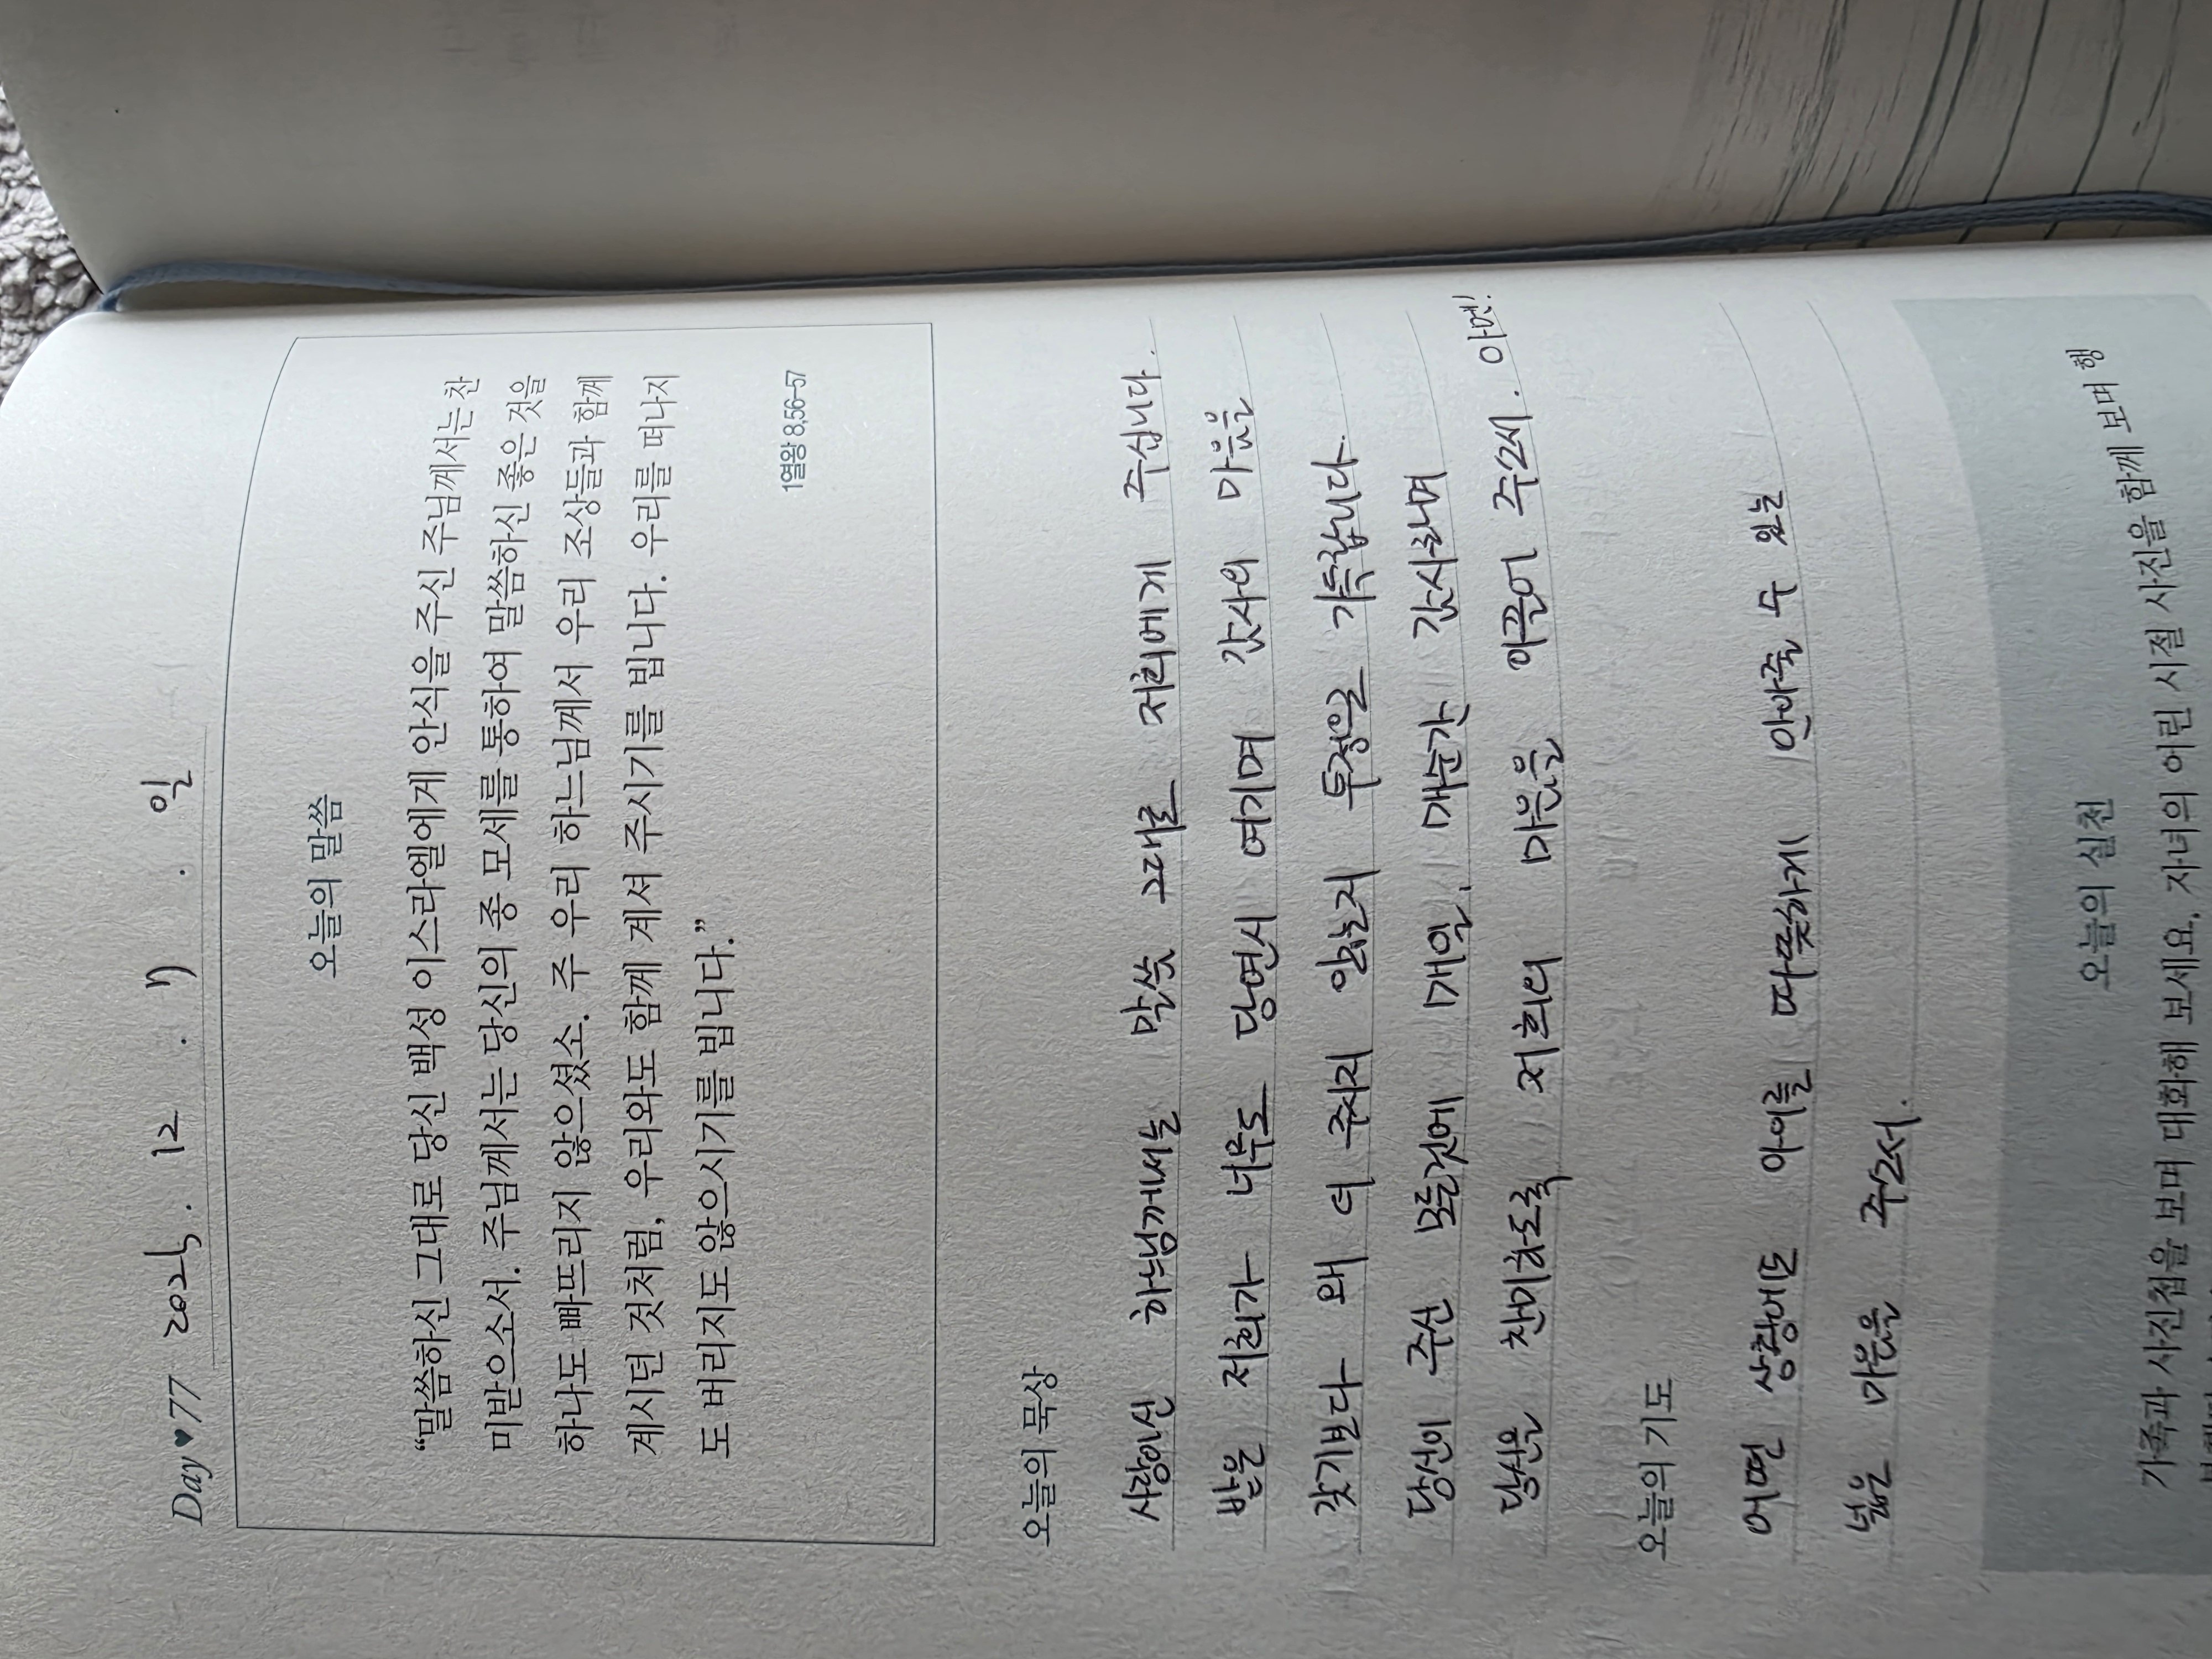 Day ♥ 77 2025. 12 . 7 . 일
오늘의 말씀
“말씀하신 그대로 당신 백성 이스라엘에게 안식을 주신 주님께서는 찬
미받으소서. 주님께서는 당신의 종 모세를 통하여 말씀하신 좋은 것을
하나도 빠뜨리지 않으셨소. 주 우리 하느님께서 우리 조상들과 함께
계시던 것처럼, 우리와도 함께 계셔 주시기를 빕니다. 우리를 떠나지
도 버리지도 않으시기를 빕니다.”
1열왕 8,56-57
오늘의 묵상
사랑이신 하느님께서는 말씀 그대로 저희에게 주십니다.
받은 저희가 너무도 당연시 여기며 감사의 마음을
갖기보다 왜 더 주시지 않는지 투정을 가득합니다.
당신이 주신 모든것에 매일, 매순간 감사하며
당신을 찬미하도록 저희의 마음을 이끌어 주소서. 아멘!
오늘의 기도
어떤 상황이든 아이를 따뜻하게 안아줄 수 있는
넓은 마음을 주소서.
오늘의 실천
가족과 사진첩을 보며 대화해 보세요. 자녀의 어린 시절 사진을 함께 보며 행